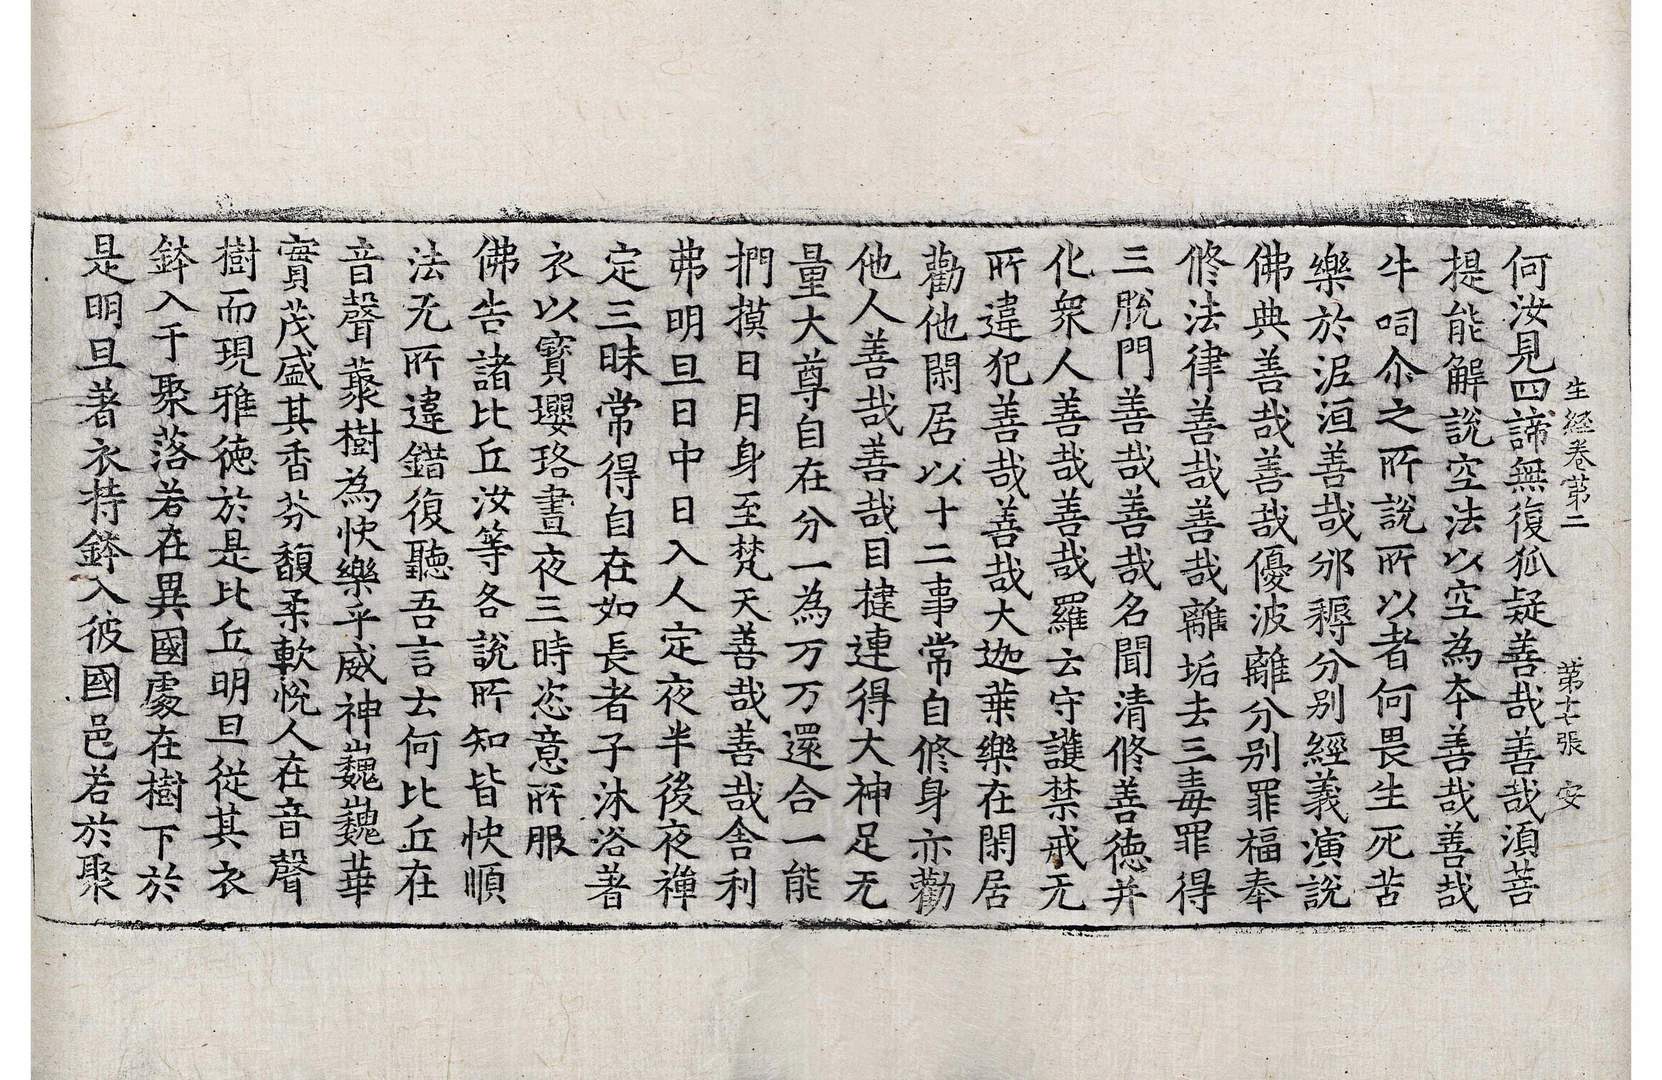 生経卷第二　第十七張　安
何汝見四諦無復狐疑善哉善哉湏菩
提能解說空法以空為夲善哉善哉
牛呞尒之所說所以者何畏生死苦
樂於泥洹善哉邠耨分別經義演說
佛典善哉善哉優波離分别罪福奉
修法律善哉善哉離垢去三毒罪得
三脫門善哉善哉名聞清修善德并
化衆人善哉善哉羅云守護禁戒无
所違犯善哉善哉大迦葉樂在閑居
勸他閑居以十二事常自修身亦勸
他人善哉善哉目揵連得大神足无
量大尊自在分一為万万還合一能
捫摸日月身至梵天善哉善哉舍利
弗明旦日中日入人定夜半後夜禪
定三昧常得自在如長者子沐浴著
衣以寶瓔珞晝夜三時恣意所服
佛告諸比丘汝等各說所知皆快順
法无所違錯復聽吾言云何比丘在
音聲藂樹為快樂乎威神巍巍華
實茂盛其香芬馥柔軟悅人在音聲
樹而現雅德於是比丘明旦從其衣
鉢入于聚落若在異國處在樹下於
是明旦著衣持鉢入彼國邑若於聚